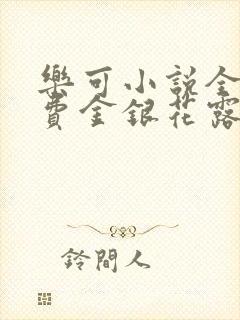 樂可小說全
費金銀花露
鈴間人